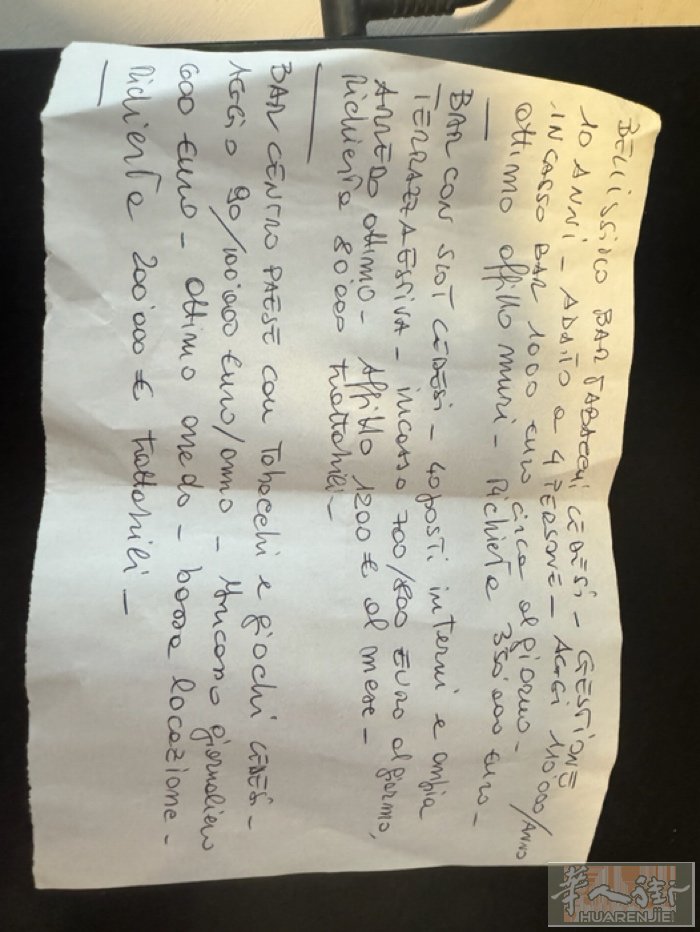 BELLISSIMO BAR TABACCHI CEDESI - GESTIONE
10 ANNI - ADATTO A 4 PERSONE - AGGI 110'000/ANNO
INCASSO BAR 1000 EURO circa al giorno -
ottimo affitto muri - Richiesta 350'000 euro -
BAR CON SLOT CEDESI - 40 posti interni e ampia
TERRAZZA ESTIVA - incasso 700/800 EURO al giorno,
ARREDO ottimo - Affitto 1200 € al mese -
Richiesta 80'000 trattabili -
BAR CENTRO PAESE con Tabacchi e giochi CEDESI -
AGGIO 90/100.000 euro/anno - Incasso giornaliero
600 euro - ottimo arredo - bassa locazione -
Richiesta 200'000 € trattabili -
华人街
HUARENJIE